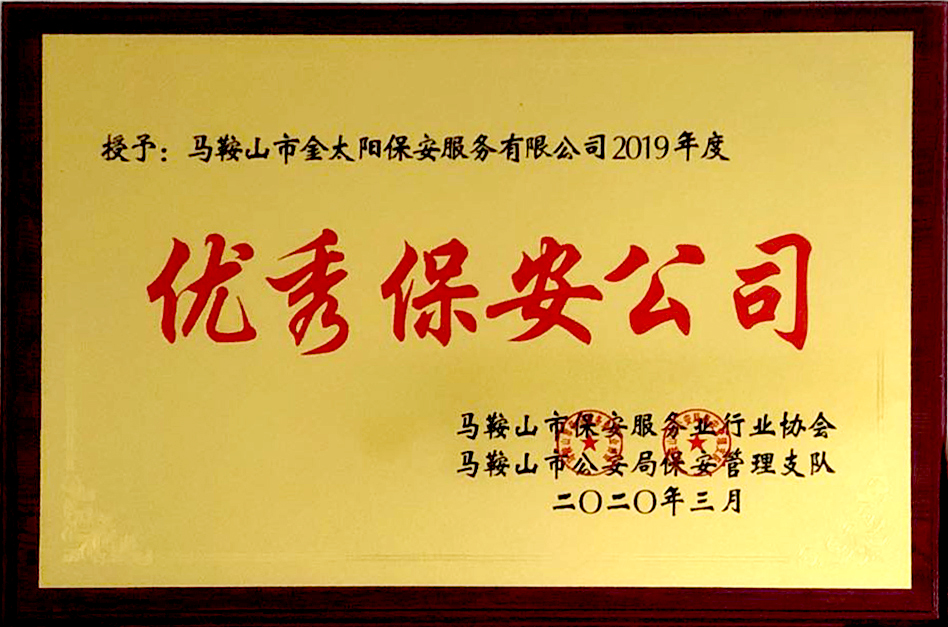 授予：马鞍山市金太阳保安服务有限公司2019年度
优秀保安公司
马鞍山市保安服务业行业协会
马鞍山市公安局保安管理支队
二〇二〇年三月